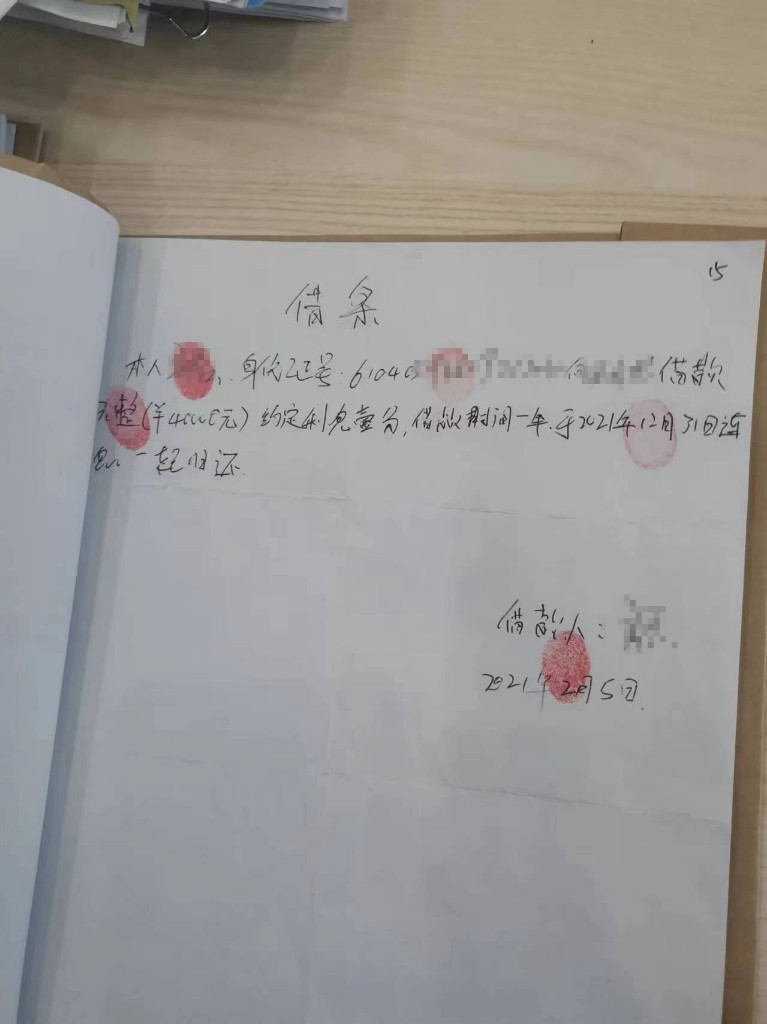 15
借条
本人 身份证号:6104 向 借款
元整(¥40000元)约定利息壹分,借款时间一年.于2021年12月31日连
息一起归还.
借款人:
2021年2月5日.